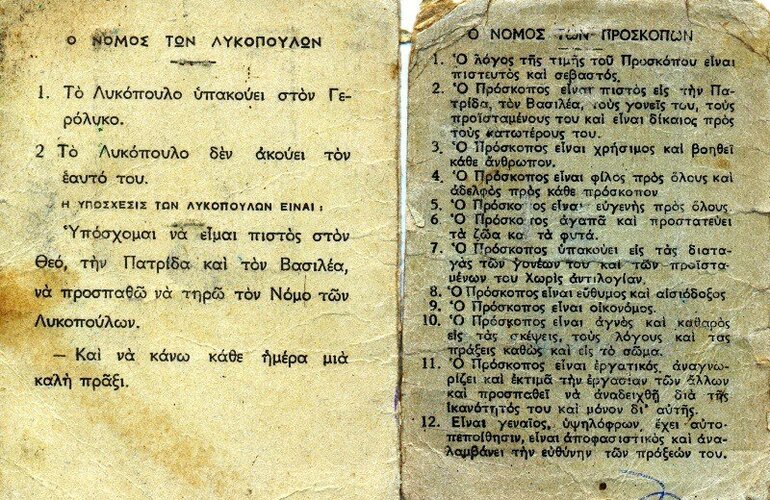 Ο ΝΟΜΟΣ ΤΩΝ ΛΥΚΟΠΟΥΛΩΝ
1. Τὸ Λυκόπουλο ὑπακούει στὸν Γε-
ρόλυκο.
2 Τὸ Λυκόπουλο δὲν ἀκούει τὸν
ἑαυτό του.
Η ΥΠΟΣΧΕΣΙΣ ΤΩΝ ΛΥΚΟΠΟΥΛΩΝ ΕΙΝΑΙ:
Ὑπόσχομαι νὰ εἶμαι πιστὸς στὸν
Θεό, τὴν Πατρίδα καὶ τὸν Βασιλέα,
νὰ προσπαθῶ νὰ τηρῶ τὸν Νόμο τῶν
Λυκοπούλων.
— Καὶ νὰ κάνω κάθε ἡμέρα μιὰ
καλὴ πρᾶξι.
Ο ΝΟΜΟΣ ΤΩΝ ΠΡΟΣΚΟΠΩΝ
1. Ὁ λόγος τῆς τιμῆς τοῦ Προσκόπου εἶναι
πιστευτὸς καὶ σεβαστός.
2. Ὁ Πρόσκοπος εἶναι πιστὸς εἰς τὴν Πα-
τρίδα, τὸν Βασιλέα, τοὺς γονεῖς του, τοὺς
προϊσταμένους του καὶ εἶναι δίκαιος πρὸς
τοὺς κατωτέρους του.
3. Ὁ Πρόσκοπος εἶναι χρήσιμος καὶ βοηθεῖ
κάθε ἄνθρωπον.
4. Ὁ Πρόσκοπος εἶναι φίλος πρὸς ὅλους καὶ
ἀδελφὸς πρὸς κάθε πρόσκοπον
5. Ὁ Πρόσκοπος εἶναι εὐγενὴς πρὸς ὅλους.
6. Ὁ Πρόσκοπος ἀγαπᾶ καὶ προστατεύει
τὰ ζῶα καὶ τὰ φυτά.
7. Ὁ Πρόσκοπος ὑπακούει εἰς τὰς διατα-
γὰς τῶν γονέων του καὶ τῶν προϊστα-
μένων του Χωρὶς ἀντιλογίαν.
8. Ὁ Πρόσκοπος εἶναι εὔθυμος καὶ αἰσιόδοξος
9. Ὁ Πρόσκοπος εἶναι οἰκονόμος.
10. Ὁ Πρόσκοπος εἶναι ἁγνὸς καὶ καθαρὸς
εἰς τὰς σκέψεις, τοὺς λόγους καὶ τας
πράξεις καθὼς καὶ εἰς τὸ σῶμα.
11. Ὁ Πρόσκοπος εἶναι ἐργατικός, ἀναγνω-
ρίζει καὶ ἐκτιμᾶ τὴν ἐργασίαν τῶν ἄλλων
καὶ προσπαθεῖ νὰ ἀναδειχθῇ διὰ τῆς
ἱκανότητός του καὶ μόνον δι' αὐτῆς.
12. Εἶναι γεναῖος, ὑψηλόφρων, ἔχει αὐτο-
πεποίθησιν, εἶναι ἀποφασιστικὸς καὶ ἀνα-
λαμβάνει τὴν εὐθύνην τῶν πράξεών του.